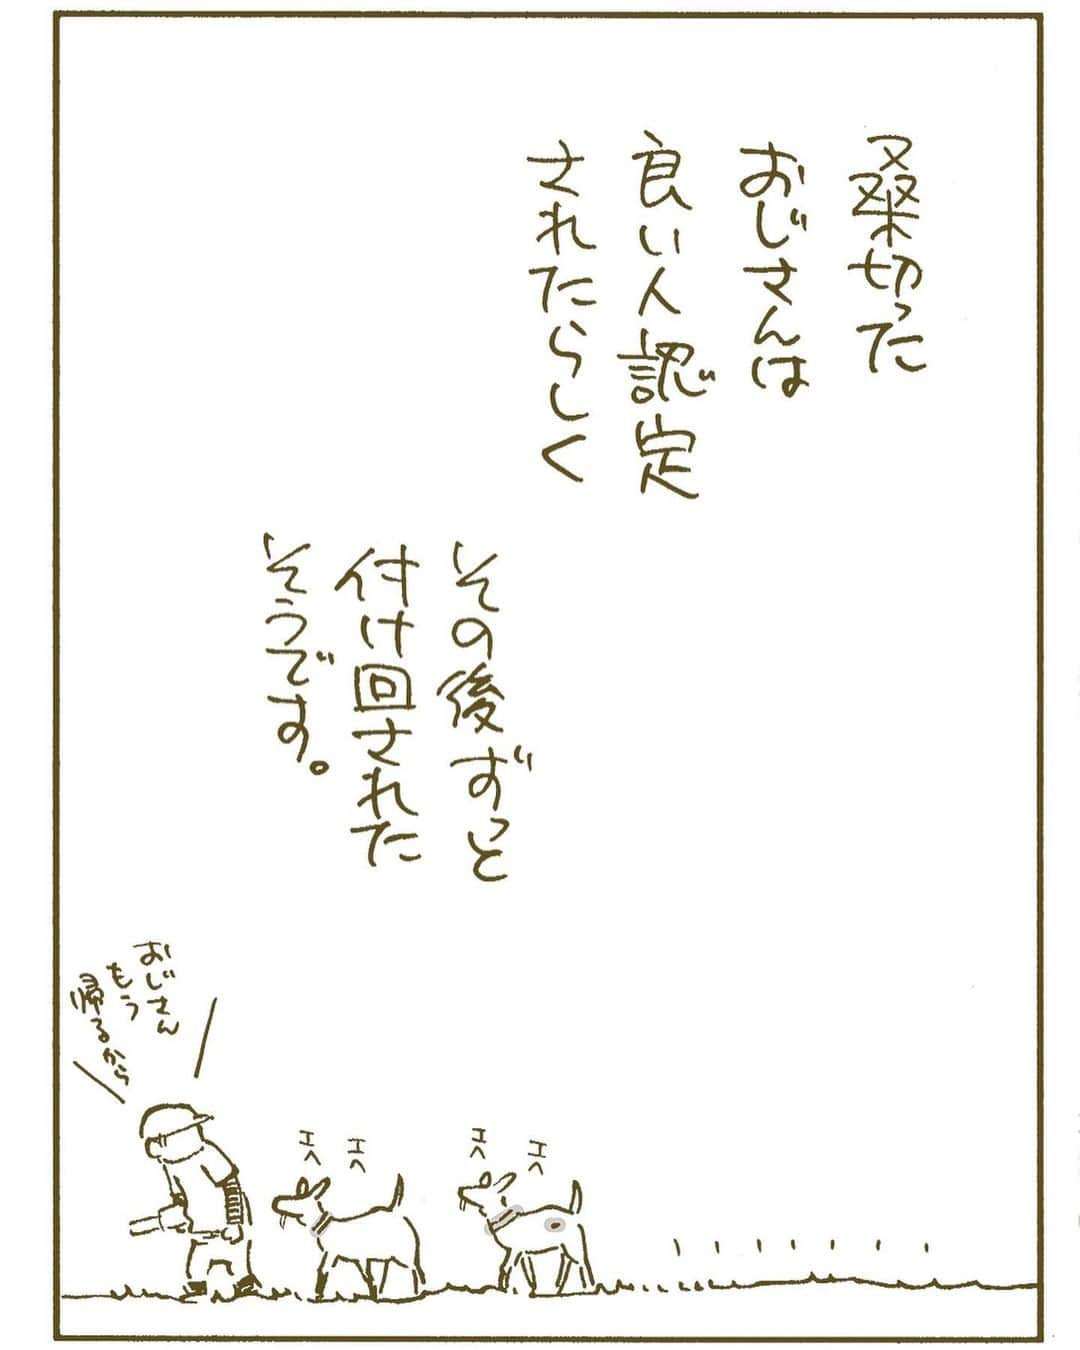 桑切った
おじさんは
良い人認定
されたらしく
その後ずっと
付け回された
そうです。
おじさん
もう
帰るから
エヘ
エヘ
エヘ
エヘ